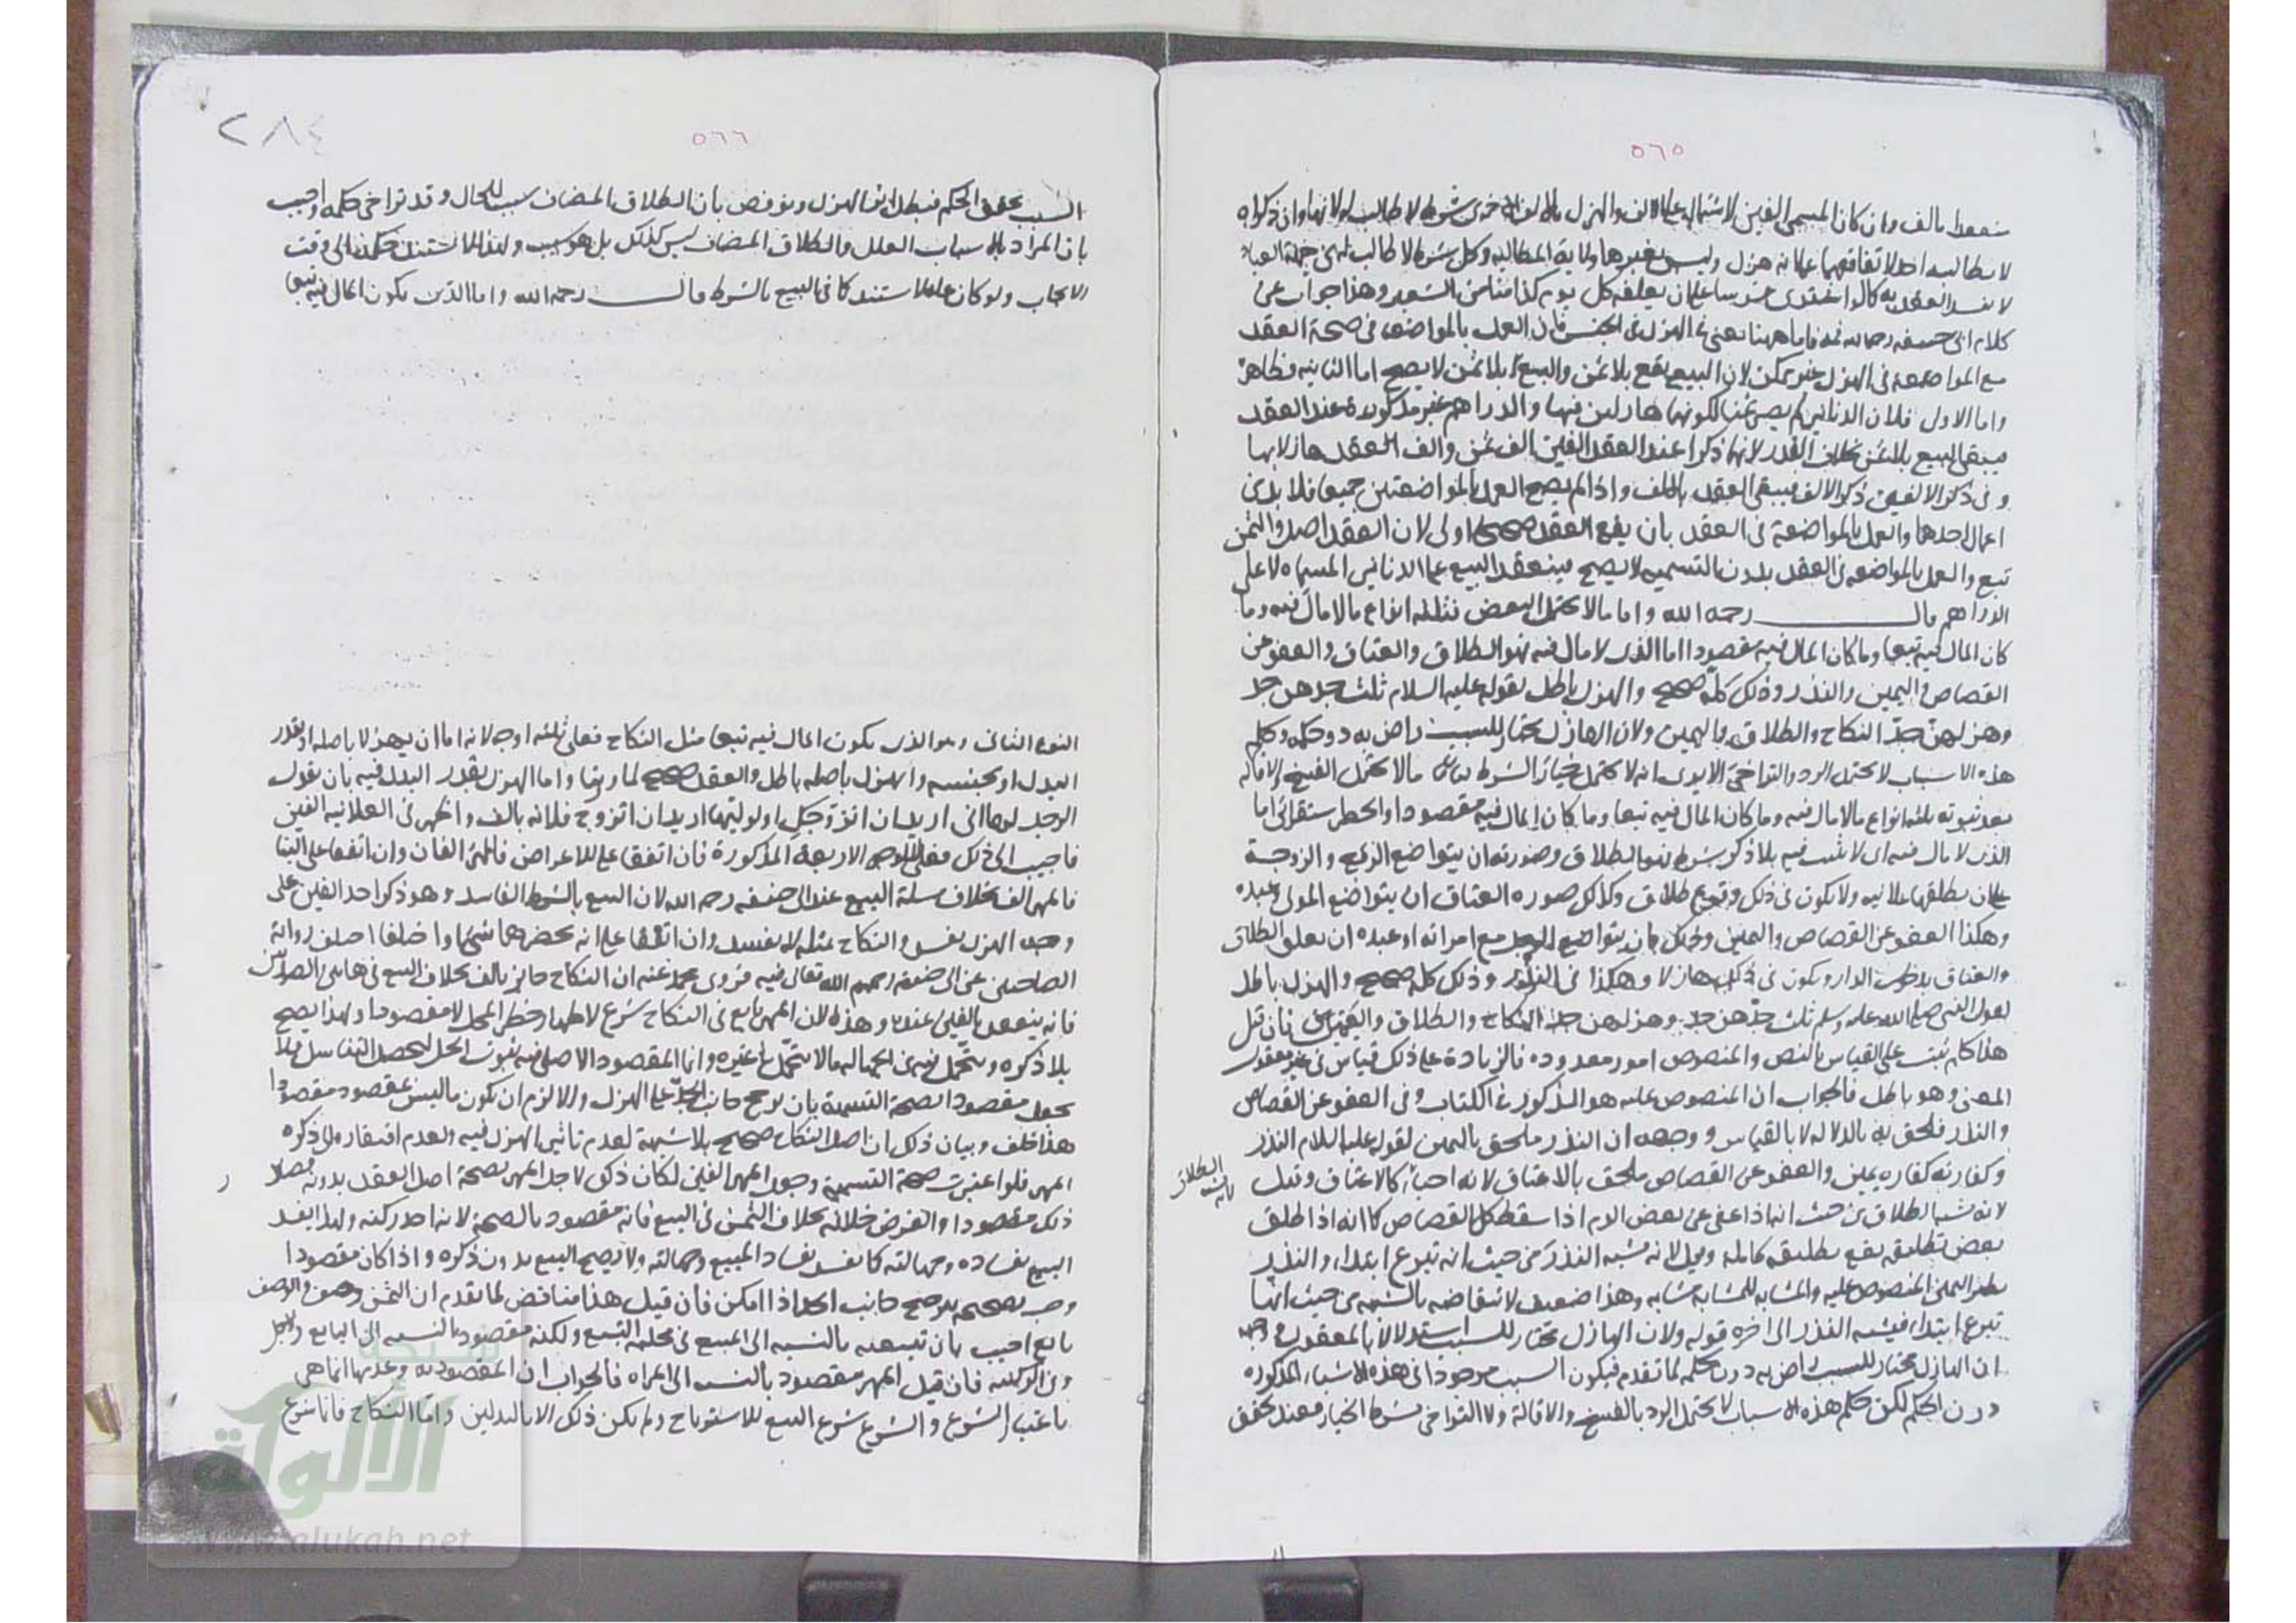 ٥٦٥
لا يطالبه احد لاتفاقهما على انه هزل وليس لغيرهما ولاية المطالبة وكل شرط لا طالب له من جهة العباد
كلام ابى حنيفة رحمه الله فاما ههنا يعنى فى الهزل فى الجنس فان العمل بالمواضعة فى صحة العقد
مع المواضعة فى الهزل غير ممكن لان البيع يقع بلا ثمن والبيع بلا ثمن لا يصح اما الثانية فظاهرة
واما الاول فلان الدنانير لم يصر ثمنا لكونهما هازلين فيها والدراهم غير مذكورة عند العقد
فيبقى البيع بلا ثمن بخلاف القدر لانهما ذكرا عند العقد الفين الف ثمن والف العقد هازلا بها
وفى ذكر الالفين ذكر الالف فيبقى العقد بالف واذا لم يصح العمل بالمواضعتين جميعا فلا بد من
اعمال احدهما والعمل بالمواضعة فى العقد بان يقع العقد صحيحا اولى لان العقد اصل والثمن
تبع والعمل بالمواضعة فى العقد بدون التسمية لا يصح فينعقد البيع على الدنانير المسماة لا على
الدراهم قال رحمه الله واما ما لا يحتمل النقض فثلثة انواع ما لا مال فيه وما
كان المال فيه تبعا وما كان المال فيه مقصودا اما الذى لا مال فيه فهو الطلاق والعتاق والعفو عن
القصاص واليمين والنذر وذلك كله صحيح والهزل باطل لقوله عليه السلام ثلث جدهن جد
وهزلهن جد النكاح والطلاق واليمين ولان الهازل مختار للسبب راض به دون حكمه وحكم
هذه الاسباب لا يحتمل الرد والتراخى الا يرى انه لا يحتمل خيار الشرط ما لا يحتمل الفسخ والاقالة
بعد ثبوته ثلثة انواع ما لا مال فيه وما كان المال فيه تبعا وما كان المال فيه مقصودا والحصر استقرائى اما
الذى لا مال فيه اى لا يثبت فيه بلا ذكر شرط فهو الطلاق وصورته ان يتواضع الزوج والزوجة
على ان يطلقها علانية ولا يكون فى ذلك وقوع طلاق وكذلك صورة العتاق ان يتواضع المولى وعبده
وهكذا العفو عن القصاص واليمين وذلك بان يتواضع الرجل مع امراته او عبده ان يعلق الطلاق
والعتاق بدخول الدار ويكون فى ذلك هازلا وهكذا فى النذور وذلك كله صحيح والهزل باطل
لقول النبى صلى الله عليه وسلم ثلث جدهن جد وهزلهن جد النكاح والطلاق واليمين فان قيل
هذا كلام ثبت على القياس بالنص والمنصوص امور معدودة فالزيادة على ذلك قياس فى غير معقول
المعنى وهو باطل فالجواب ان المنصوص عليه هو المذكور فى الكتاب وفى العفو عن القصاص
والنذر فلحق به بالدلالة لا بالقياس ووجهه ان النذر ملحق باليمين لقوله عليه السلام النذر
وكفارته كفارة يمين والعفو عن القصاص ملحق بالاعتاق لانه احياء كالاعتاق وقيل
لانه شبه الطلاق من حيث انه اذا عفى عن بعض الدم اذا سقط كل القصاص كما انه اذا طلق
بعض تطليقة يقع تطليقة كاملة وقيل لانه شبه النذر من حيث انه تبرع ابتداء والنذر
نظير اليمين المنصوص عليه والمشابه للمشابه مشابه وهذا ضعيف لانتقاضه بالشبه من حيث انها
تبرع ابتداء فيشبه النذر الى اخره قوله ولان الهازل مختار للسبب استدلالا بالمعقول
ان الهازل مختار للسبب راض به دون حكمه لما تقدم فيكون السبب موجودا فى هذه الاشياء المذكورة
دون الحكم لكن حكم هذه الاسباب لا يحتمل الرد بالفسخ والاقالة ولا التراخى بشرط الخيار فعند تحقق
٥٦٦
٢٨٤
السبب تحقق الحكم فبطل اثر الهزل ونوقض بان الطلاق المضاف سبب للحال وقد تراخى حكمه واجيب
بان المراد بالاسباب العلل والطلاق المضاف ليس كذلك بل هو سبب ولهذا لا يستند حكمه الى وقت
الايجاب ولو كان علة لاستند كما فى البيع بالشرط قال رحمه الله واما الذى يكون المال فيه تبعا
النوع الثانى وهو الذى يكون المال فيه تبعا مثل النكاح فعلى ثلثة اوجه لانه اما ان يهزلا باصله او بقدر
البدل او بجنسه والهزل باصله باطل والعقد صحيح لما روينا واما الهزل بقدر البدل فيه بان يقول
الرجل لامرأة انى اريد ان اتزوجك او لوليها اريد ان اتزوج فلانة بالف واظهر فى العلانية الفين
فاجيب الى ذلك فعلى الاوجه الاربعة المذكورة فان اتفقا على الاعراض فالمهر الفان وان اتفقا على البناء
فالمهر الف بخلاف مسئلة البيع عند ابى حنيفة رحمه الله لان البيع بالشرط الفاسد وهو ذكر احد الفين على
وجه الهزل يفسد والنكاح بمثله لا يفسد وان اتفقا على انه لم يحضرهما شئ او اختلفا اختلف رواية
الصاحبين عن ابى حنيفة رحمهم الله تعالى فيه فروى محمد عنه ان النكاح جائز بالف بخلاف البيع فى هاتين الصورتين
فانه ينعقد بالفين عنده وهذا لان المهر تابع فى النكاح شرع لاظهار خطر المحل لا مقصودا ولهذا يصح
بلا ذكره ويتحمل فيه من الجهالة ما لا يتحمل فى غيره وانما المقصود الاصلى فيه ثبوت الحل ليحصل التناسل فلا
يجعل مقصودا لصحة التسمية بان يرجح جانب الجد على الهزل والا لزم ان يكون ما ليس بمقصود مقصودا
هذا خلف وبيان ذلك ان اصل النكاح صحيح بلا شبهة لعدم تاثير الهزل فيه ولعدم افتقاره الى ذكره
المهر فلو اعتبرت صحة التسمية وجعل المهر الفين لكان ذكره لاجل المهر لصحة اصل العقد بدونه فصار
ذلك مقصودا والفرض خلافه بخلاف الثمن فى البيع فانه مقصود بالصحة لانه احد ركنيه ولهذا يفسد
البيع بفساده وجهالته كما يفسد بفساد المبيع وجهالته ولا يصح البيع بدون ذكره واذا كان مقصودا
وجب تصحيحه بترجيح جانب الجد اذا امكن فان قيل هذا مناقض لما تقدم ان الثمن وصف والوصف
تابع اجيب بان تبعيته بالنسبة الى المبيع فى محلية البيع ولكنه مقصود بالنسبة الى البايع
وفى الركنية فان قيل المهر مقصود بالنسبة الى المراة فالجواب ان المقصودية وعدمها انما هى
باعتبار الشرع والشرع شرع البيع للاسترباح ولم يكن ذلك الا بالبدلين واما النكاح فانما شرع
شبكة
الألوكة
www.alukah.net